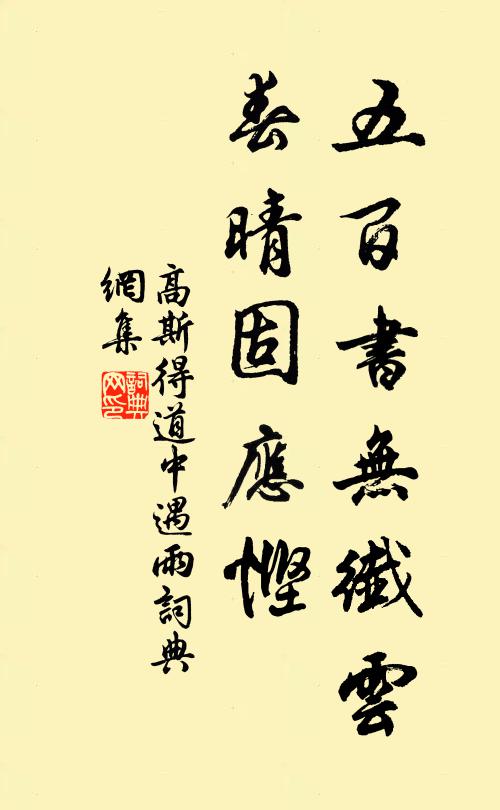 五百書無纖雲
春晴固應慳
高斯得道中遇雨詞典
網集
詞典
网印